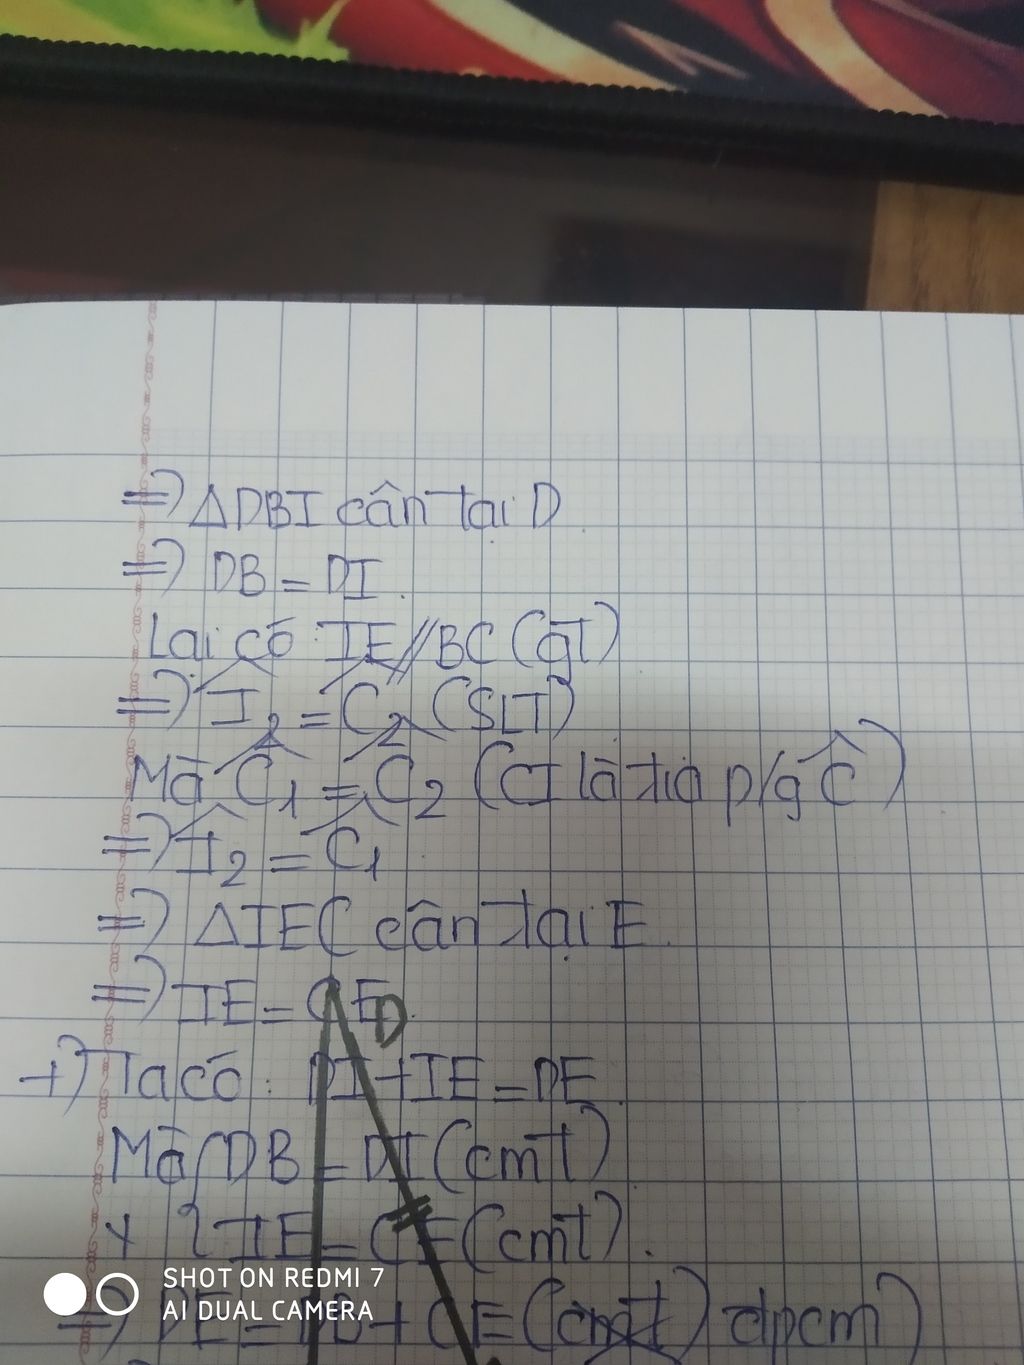 => ΔDBI cân tại D
=> DB = DI.
Lại có: IE // BC (gt)
=> Î₂ = Ĉ₂ (SLT)
Mà Ĉ₁ = Ĉ₂ (CI là tia p/g Ĉ)
=> Î₂ = Ĉ₁
=> ΔIEC cân tại E.
=> IE = CE
D
+) Ta có: DI + IE = DE
Mà { DB = DI (cmt)
IE = CE (cmt).
=> DE = DB + CE (đpcm)
SHOT ON REDMI 7
AI DUAL CAMERA